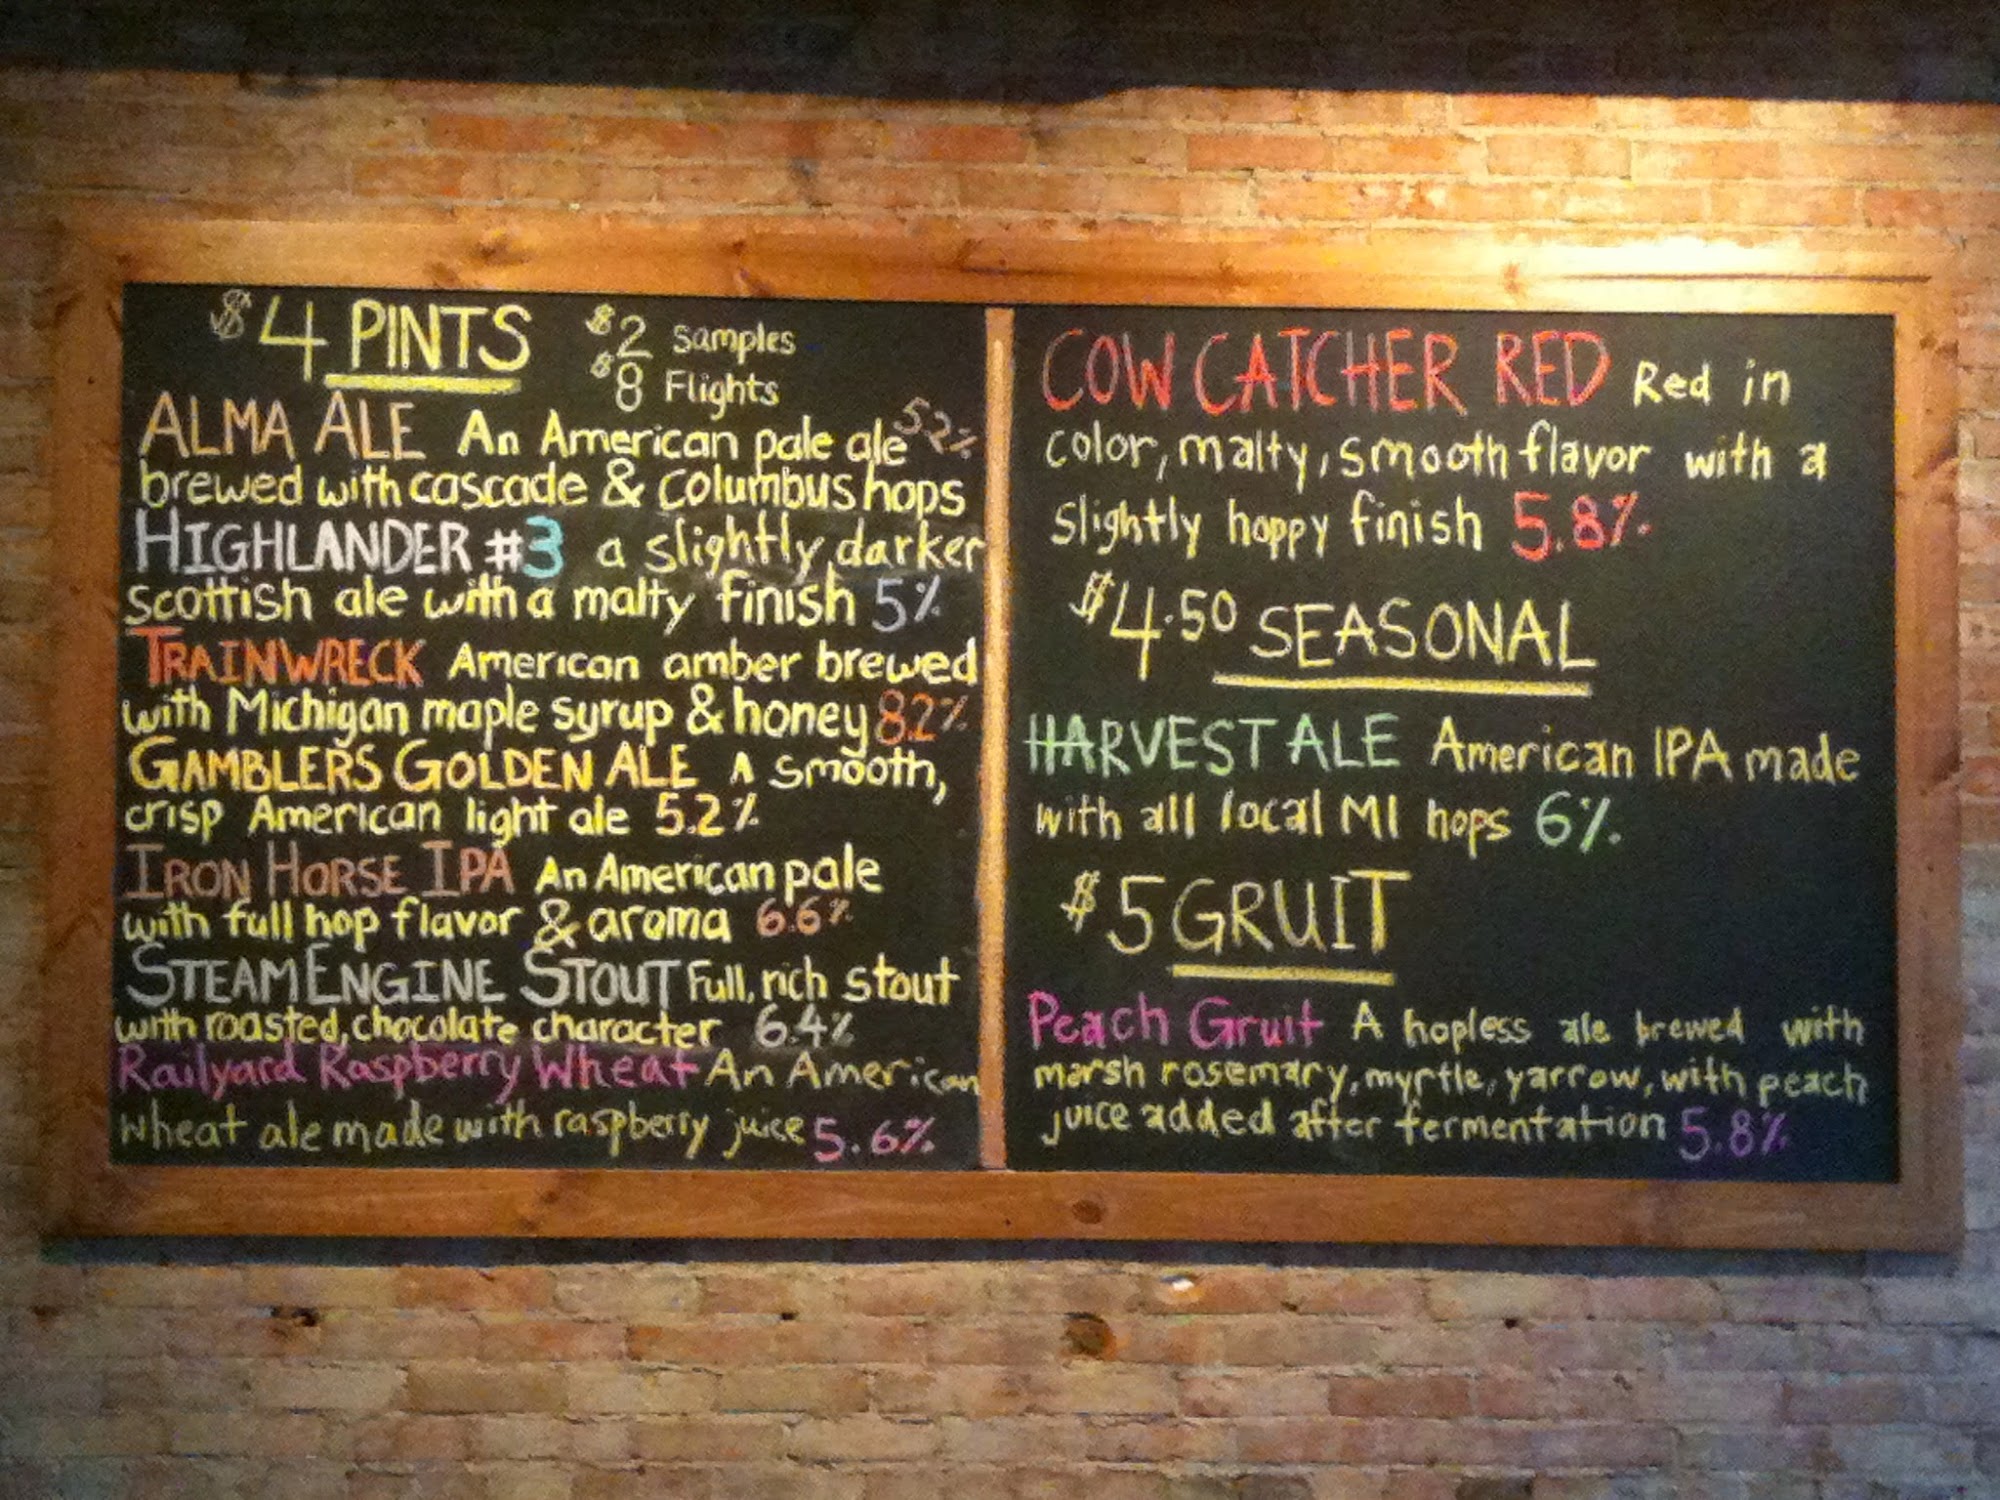 $4 PINTS
$2 Samples
$8 Flights
ALMA ALE An American pale ale 5.2%
brewed with cascade & columbus hops
HIGHLANDER #3 a slightly darker
scottish ale with a malty finish 5%
TRAINWRECK American amber brewed
with Michigan maple syrup & honey 8.2%
GAMBLERS GOLDEN ALE A smooth,
crisp American light ale 5.2%
IRON HORSE IPA An American pale
with full hop flavor & aroma 6.6%
STEAM ENGINE STOUT Full, rich stout
with roasted, chocolate character 6.4%
Railyard Raspberry Wheat An American
wheat ale made with raspberry juice 5.6%
COW CATCHER RED Red in
color, malty, smooth flavor with a
slightly hoppy finish 5.8%
$4.50 SEASONAL
HARVEST ALE American IPA made
with all local MI hops 6%
$5 GRUIT
Peach Gruit A hopless ale brewed with
marsh rosemary, myrtle, yarrow, with peach
juice added after fermentation 5.8%